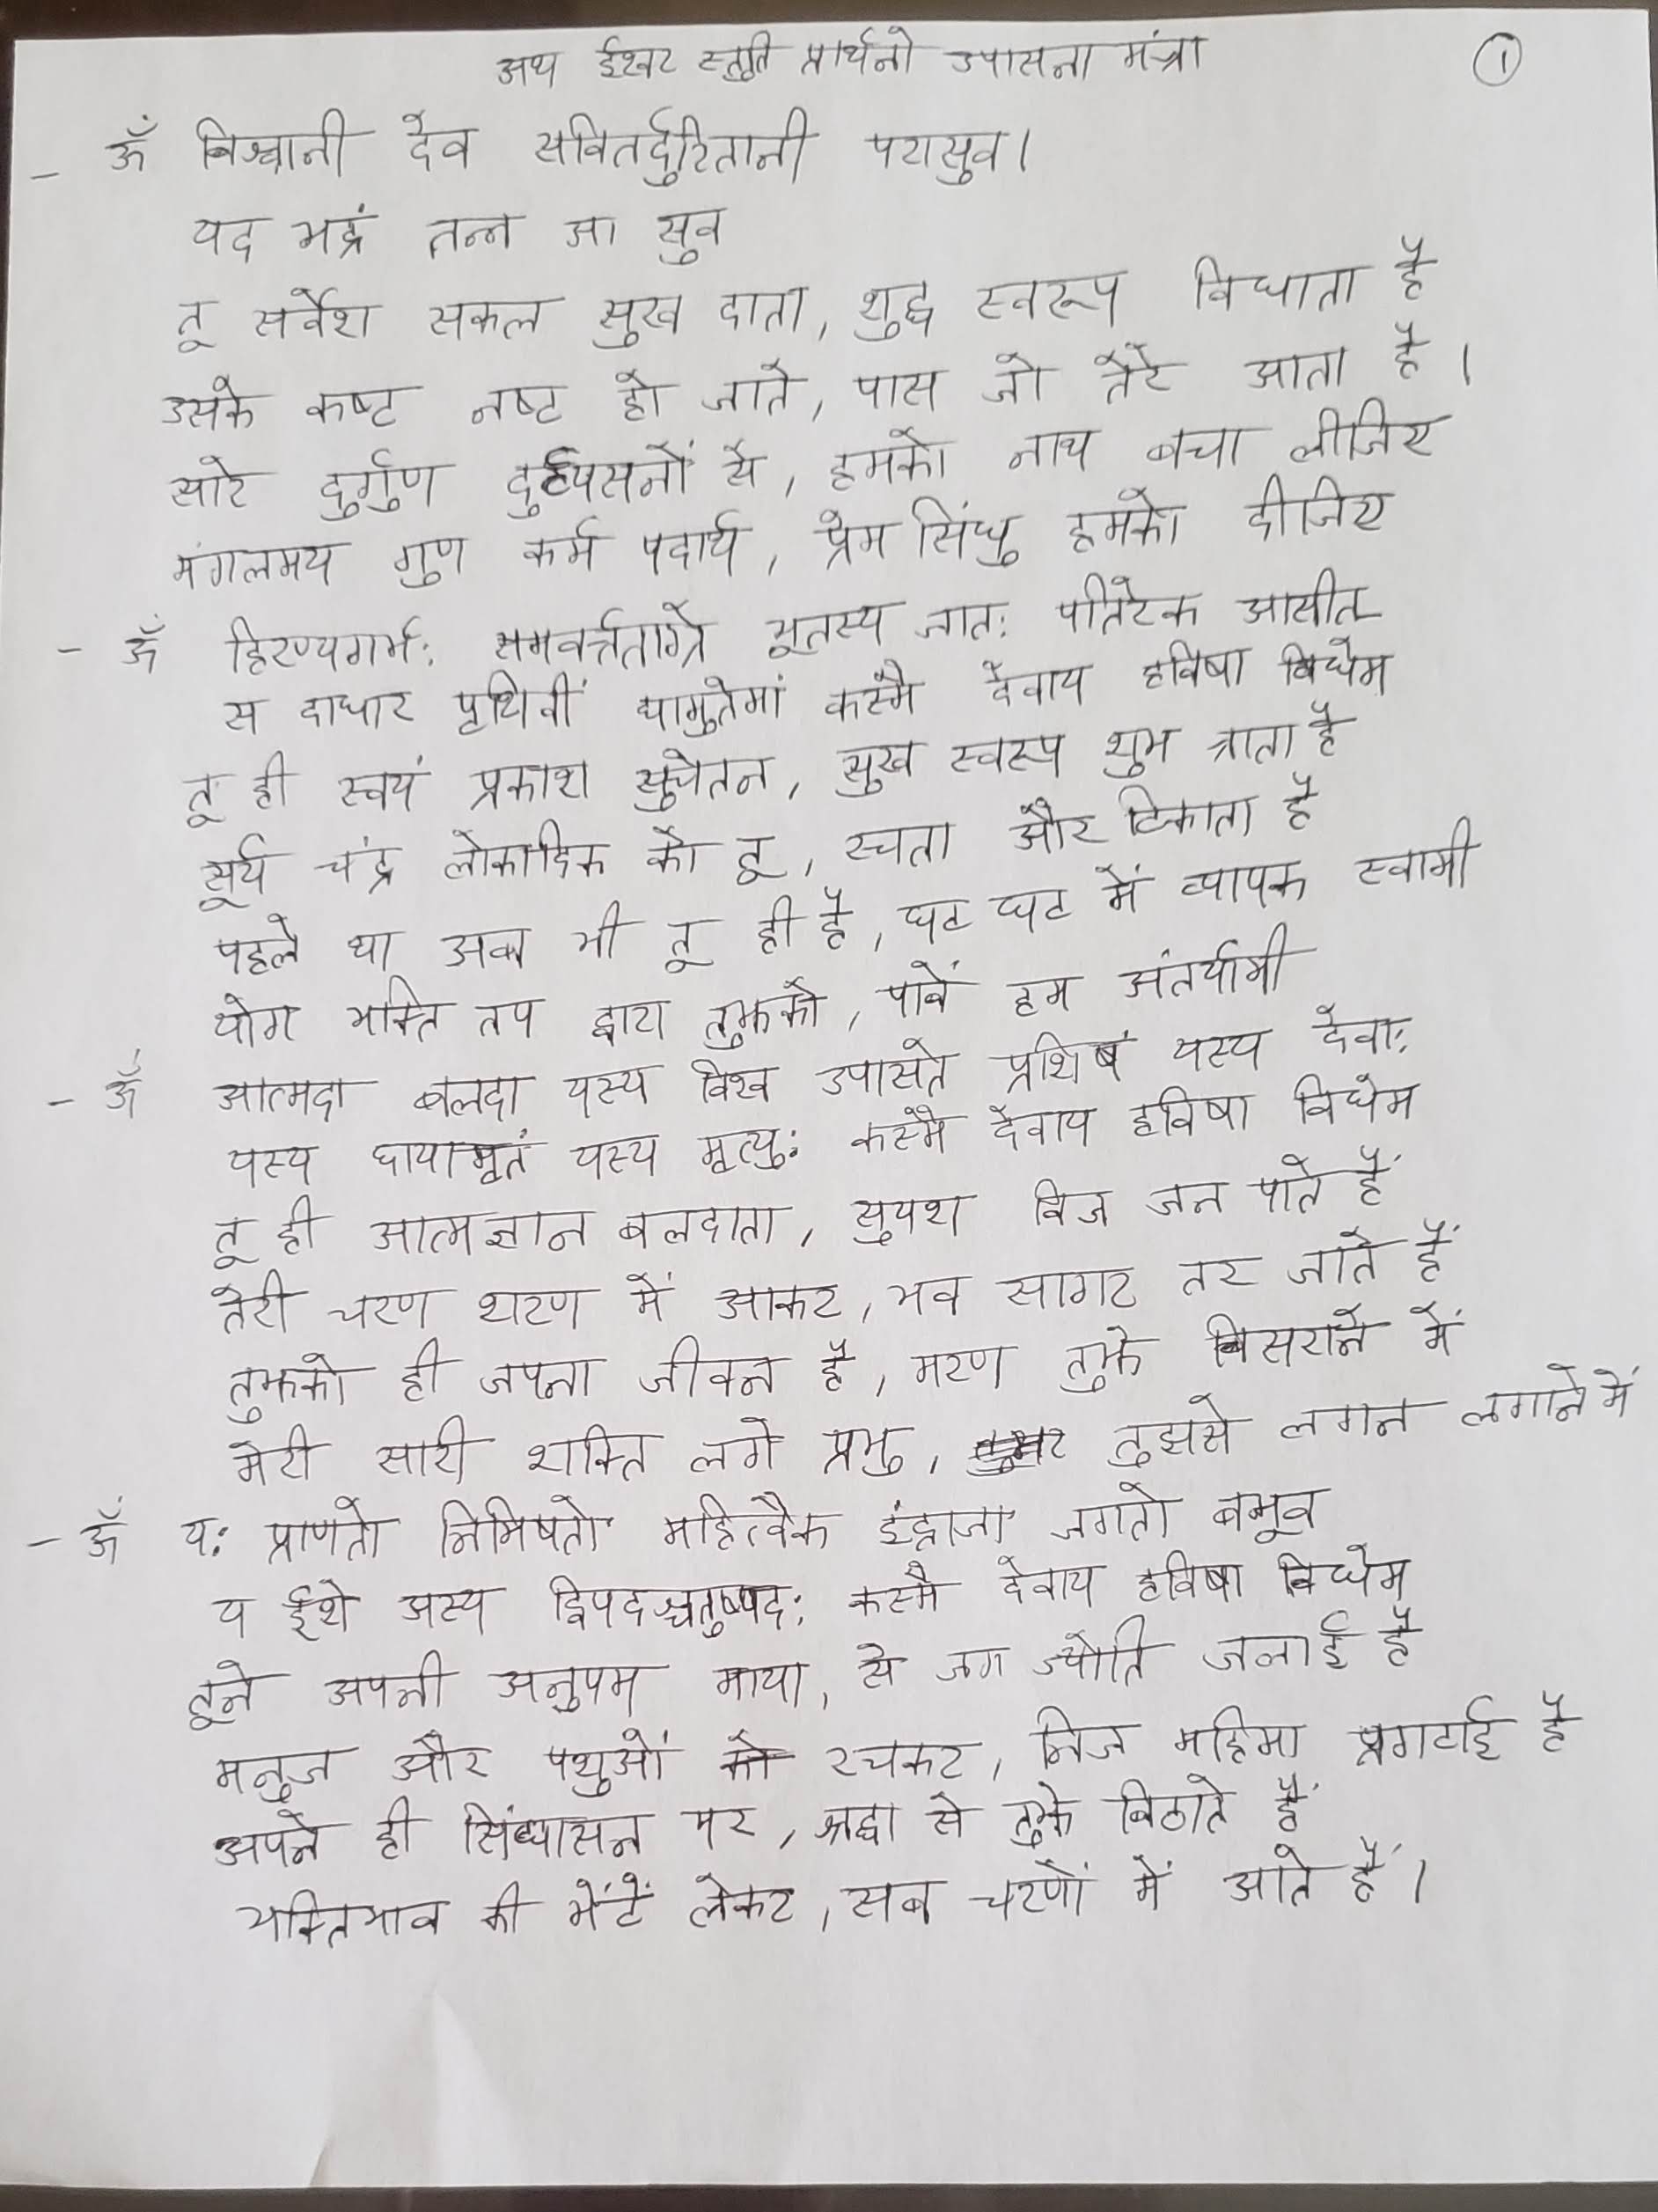 अथ ईश्वर स्तुति प्रार्थनो उपासना मंत्रा
①
- ॐ विश्वानी देव सवितर्दुरितानी परासुव।
यद भद्रं तन्न आ सुव
तू सर्वेश सकल सुख दाता, शुद्ध स्वरूप विधाता है
उसके कष्ट नष्ट हो जाते, पास जो तेरे आता है।
सारे दुर्गुण दुर्व्यसनों से, हमको नाथ बचा लीजिए
मंगलमय गुण कर्म पदार्थ, प्रेम सिंधु हमको दीजिए
- ॐ हिरण्यगर्भ: समवर्त्तताग्रे भूतस्य जात: पतिरेक आसीत
स दाधार पृथिवीं द्यामुतेमां कस्मै देवाय हविषा विधेम
तू ही स्वयं प्रकाश सुचेतन, सुख स्वरूप शुभ त्राता है
सूर्य चंद्र लोकादिक को तू, रचता और टिकाता है
पहले था अब भी तू ही है, घट घट में व्यापक स्वामी
योग भक्ति तप द्वारा तुझको, पावें हम अंतर्यामी
- ॐ आत्मदा बलदा यस्य विश्व उपासते प्रशिषं यस्य देवा:
यस्य छायामृतं यस्य मृत्यु: कस्मै देवाय हविषा विधेम
तू ही आत्मज्ञान बलदाता, सुयश विज्ञ जन पाते हैं
तेरी चरण शरण में आकर, भव सागर तर जाते हैं
तुझको ही जपना जीवन है, मरण तुझे बिसराने में
मेरी सारी शक्ति लगे प्रभु, तुझसे लगन लगाने में
- ॐ य: प्राणतो निमिषतो महित्वैक इंद्राजा जगतो बभूव
य ईशे अस्य द्विपदश्चतुष्पद: कस्मै देवाय हविषा विधेम
तूने अपनी अनुपम माया, से जग ज्योति जलाई है
मनुज और पशुओं को रचकर, निज महिमा प्रगटाई है
अपने ही सिंघासन पर, श्रद्धा से तुझे बिठाते हैं
भक्तिभाव की भेंटें लेकर, सब चरणों में आते हैं।